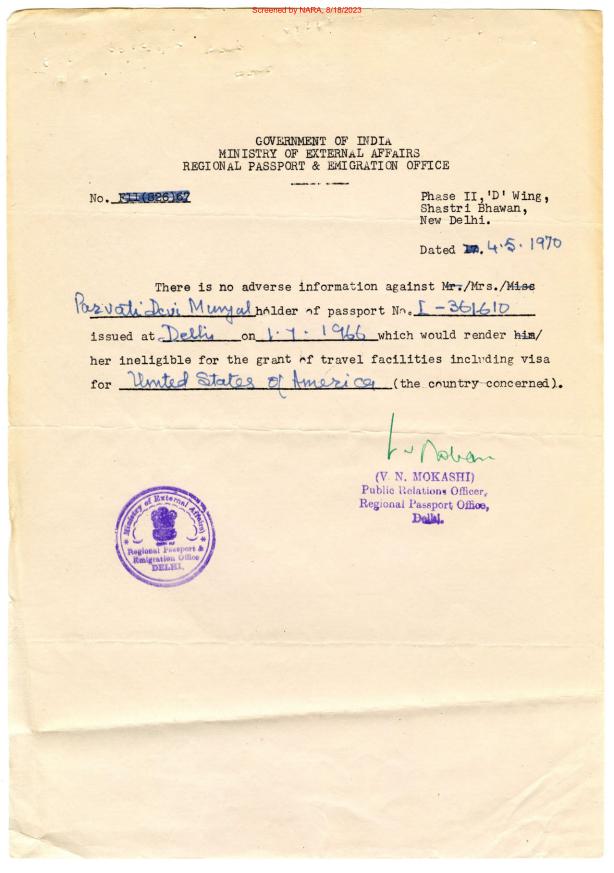 Screened by NARA, 8/18/2023
GOVERNMENT OF INDIA
MINISTRY OF EXTERNAL AFFAIRS
REGIONAL PASSPORT & EMIGRATION OFFICE
No. F11(826)67
Phase II,'D' Wing,
Shastri Bhawan,
New Delhi.
Dated 4.5.1970
There is no adverse information against Mr./Mrs./Miss
Parvati Devi Munjal holder of passport No. I-361610
issued at Delhi on 1.7.1966 which would render him/
her ineligible for the grant of travel facilities including visa
for United States of America (the country concerned).
(V. N. MOKASHI)
Public Relations Officer,
Regional Passport Office,
Delhi.
Ministry of External Affairs
Regional Passport &
Emigration Office
DELHI.